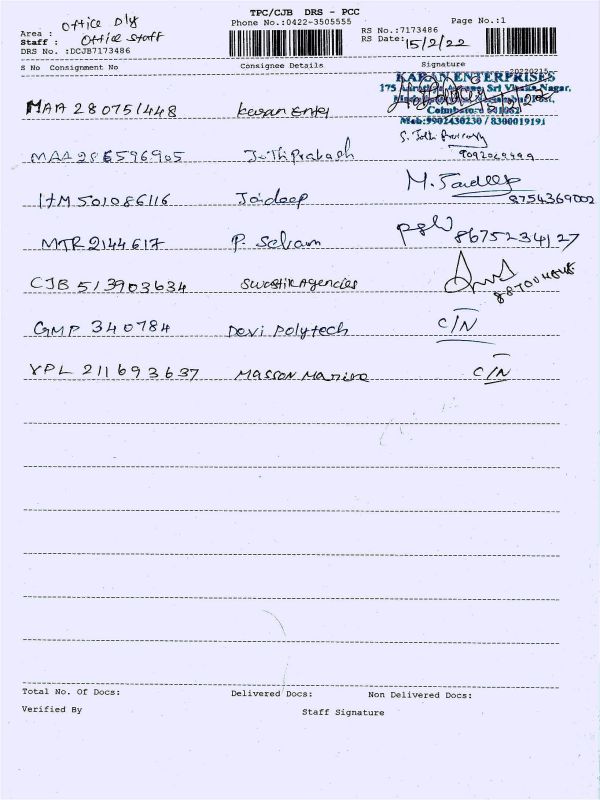 TPC/CJB DRS - PCC
Area : Office Dly
Phone No.:0422-3505555
Page No.:1
Staff : Office Staff
RS No.:7173486
DRS No. :DCJB7173486
RS Date: 15/2/22
20220215
S No Consignment No Consignee Details Signature
KARAN ENTERPRISES
175 Sri Nagar,
Post,
Coimbatore 641062
Mob:9902430230 / 8300019191
MAA 280751448 Karan Enter
MAA 286596905 Jothi Prakash
ITM 501086116 Jaideep M. Jaideep
8754369002
MTR 2144617 P. Selvam
8675234127
CJB 513903634 Swastik Agencies
GMP 340784 Devi Polytech C/N
VPL 211693637 Masson Marine C/N
Total No. Of Docs: Delivered Docs: Non Delivered Docs:
Verified By Staff Signature